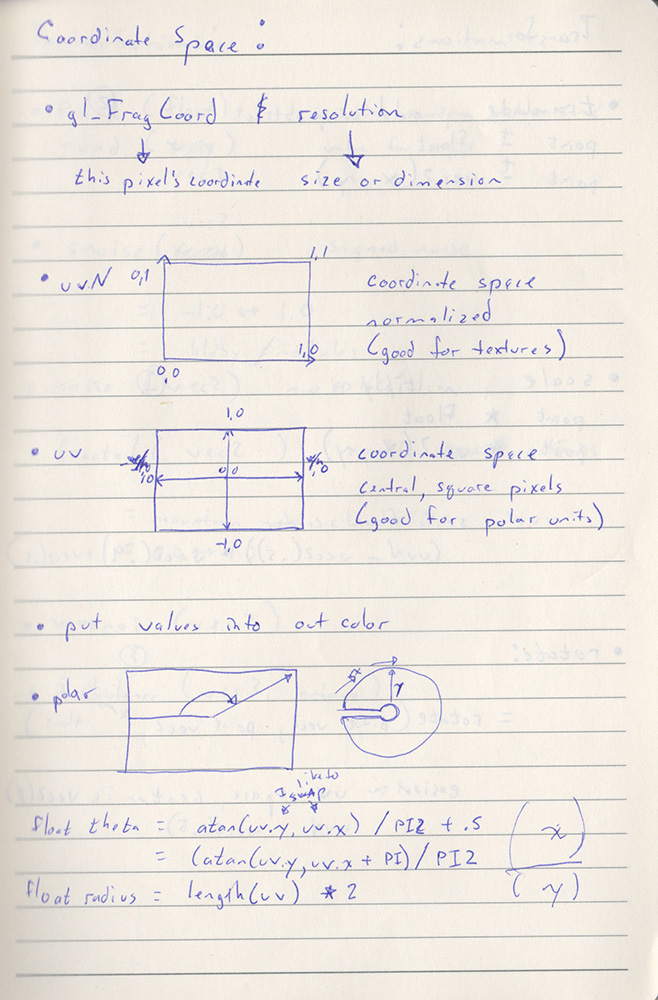 Coordinate Space:
• gl_FragCoord & resolution
this pixel's coordinate size or dimension
• uvN 0,1 1,1 coordinate space
normalized
1,0 (good for textures)
0,0
1,0
• uv 0,0 coordinate space
central, square pixels
(good for polar units)
-1,0
• put values into out color
• polar
r
I like to
swap
float theta = atan(uv.y, uv.x) / PI2 + .5
= (atan(uv.y, uv.x + PI) / PI2
float radius = length(uv) * 2
(x)
(y)